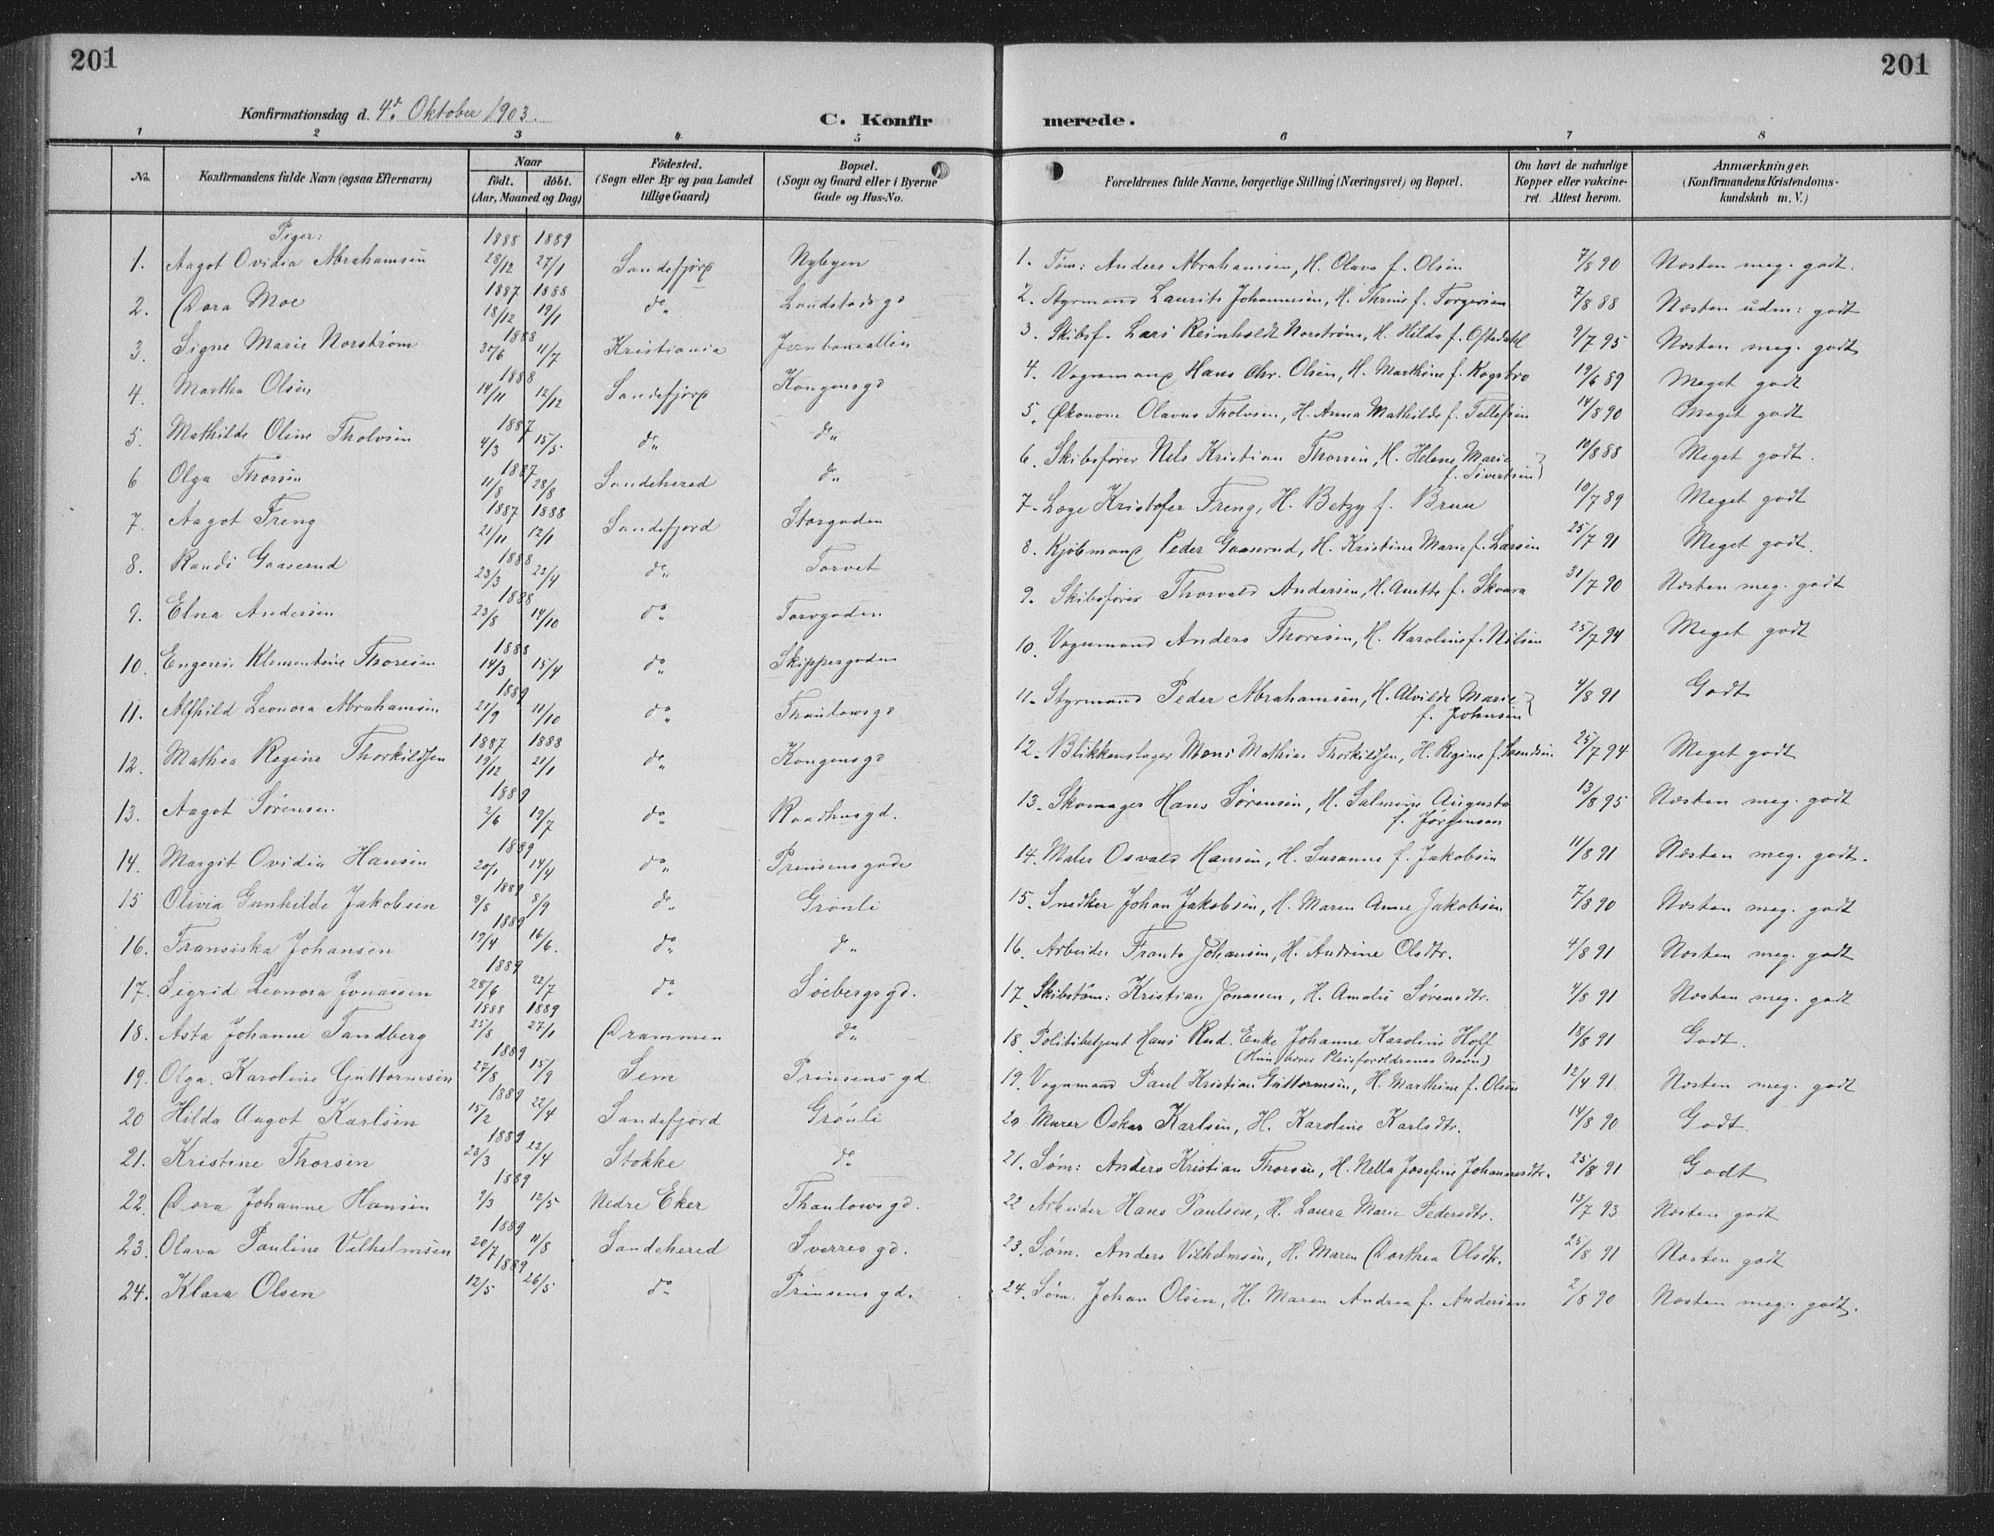 201
201
Konfirmationsdag d. 4de Oktober 1903.
C. Konfirmerede.
1 2 3 4 5 6 7 8
No.
Konfirmandens fulde Navn (ogsaa Efternavn)
Naar
födt. döbt.
(Aar, Maaned og Dag)
Födested.
(Sogn eller By og paa Landet
tillige Gaard)
Bopæl.
(Sogn og Gaard eller i Byerne
Gade og Hus-No.
Forældrenes fulde Navne, borgerlige Stilling (Næringsvei) og Bopæl.
Om havt de naturlige
Kopper eller vakcine-
ret Attest herom.
Anmærkninger.
(Konfirmandens Kristendoms-
kundskab m. V.)
Piger:
1888 1889
1. Aagot Ovidia Abrahamsen 28/12 27/1 Sandefjord Nybyen 1. Tøm: Anders Abrahamsen, H. Olava f. Olsen 7/8 90 Næsten meg. godt.
1887 1888
2. Dora Moe 18/12 19/1 do Landstadsgd 2. Styrmand Laurits Johannesen, H. Thrine f. Torgersen 7/8 88 Næsten udm: godt
1888
3. Signe Marie Norstrøm 30/6 11/7 Kristiania Jernbanealleen 3. Skibsf. Lars Reinholdt Norstrøm, H. Hilda f. Oftedahl 9/7 95 Næsten meg. godt
1888
4. Martha Olsen 14/11 12/12 Sandefjord Kongensgd 4. Vognmand Hans Chr. Olsen, H. Marthine f. Rogstro 19/6 89 Meget godt
1887
5. Mathilde Oline Tholvsen 4/3 15/5 do do 5. Økonom Olavus Tholvsen, H. Anna Mathilde f. Tellefsen 14/8 90 Meget godt
1887
6 Olga Thorsen 11/8 28/8 Sandehered do 6. Skibsfører Nils Kristian Thorsen, H. Helene Marie
f. Sivertsen 10/8 88 Meget godt.
1887 1888
7. Aagot Freng 21/11 12/1 Sandefjord Storgaden 7. Læge Kristofer Freng, H. Betzy f. Bruu 10/7 89 Meget godt
1888
8. Randi Gaaserud 23/3 22/4 do Torvet 8. Kjøbmand Peder Gaaserud, H. Kristine Marie f. Larsen 25/7 91 Meget godt.
1888
9. Elna Andersen 23/8 14/10 do Torvgaden 9. Skibsfører Thorvald Andersen, H. Anette f. Skaara 31/7 90 Næsten meg. godt
1888
10. Engenie Klementine Thoresen 14/3 15/4 do Skippergaden 10. Vognmand Anders Thoresen, H. Karoline f. Nilsen 25/7 94 Meget godt
1889
11. Alfhild Leonora Abrahamsen 21/9 11/10 do Thaulowsgd 11. Styrmand Peder Abrahamsen, H. Alvilde Marie
f. Johnsen 4/8 91 Godt
1887 1888
12. Mathea Regine Thorkildsen 19/12 21/1 do Kongensgd 12. Blikkenslager Mons Mathias Thorkildsen, H. Regine f. Svendsen 25/7 94 Meget godt
1889
13. Aagot Sørensen 2/6 19/7 do Raadhusgd. 13. Skomager Hans Sørensen, H. Salmine Augusta
f. Jørgensen 13/8 95 Næsten meg. godt
1889
14. Margit Ovidia Hansen 20/1 14/4 do Prinsensgade 14. Maler Osvald Hansen, H. Susanne f. Jakobsen 11/8 91 Næsten meg. godt.
1889
15 Olivia Gunhilde Jakobsen 9/8 8/9 do Grønli 15. Snedker Johan Jakobsen, H. Maren Anne Jakobsen 7/8 90 Næsten meg. godt
1889
16. Fransiska Johansen 19/4 16/6. do do 16. Arbeider Frants Johansen, H. Andrine Olsdtr. 4/8 91 Næsten meg. godt
1889
17. Sigrid Leonora Jonassen 28/6 22/7 do Søebergsgd. 17. Skibstøm: Kristian Jonassen, H. Amalie Sørensdtr. 4/8 91 Næsten meg. godt
1888 1889
18. Asta Johanne Tandberg 25/8 27/1 Drammen do 18. Politibetjent Hans Rud. Enke Johanne Karoline Hoff
(Hun bærer Pleieforældrenes Navn) 18/8 91 Godt.
1889
19. Olga Karoline Guttormsen 27/8 15/9 Sem Prinsensgd. 19. Vognmand Paul Kristian Guttormsen, H. Marthine f. Olsen 12/4 91 Næsten meg. godt
1889
20 Hilda Aagot Karlsen 15/2 22/4 Sandefjord Grønli 20 Murer Oskar Karlsen, H. Karoline Karlsdtr. 14/8 90 Godt.
1889
21. Kristine Thorsen 23/3 23/4 Stokke do 21. Søm: Anders Kristian Thorsen, H. Nella Josefine Johannesdtr. 25/8 91 Godt
1889
22. Dora Johanne Hansen 9/3 12/5 Nedre Eker Thaulowsgd. 22 Arbeider Hans Paulsen, H. Laura Marie Pedersdtr. 13/7 93 Næsten godt
1889
23. Olava Pauline Vilhelmsen 20/7 11/8 Sandehered Sverresgd. 23. Søm. Anders Vilhelmsen, H. Maren Dorthea Olsdtr. 25/8 91 Næsten godt
1889
24. Klara Olsen 12/5 26/5 do Prinsensgd. 24. Søm. Johan Olsen, H. Maren Andrea f. Andersen 2/8 90 Næsten meg. godt.